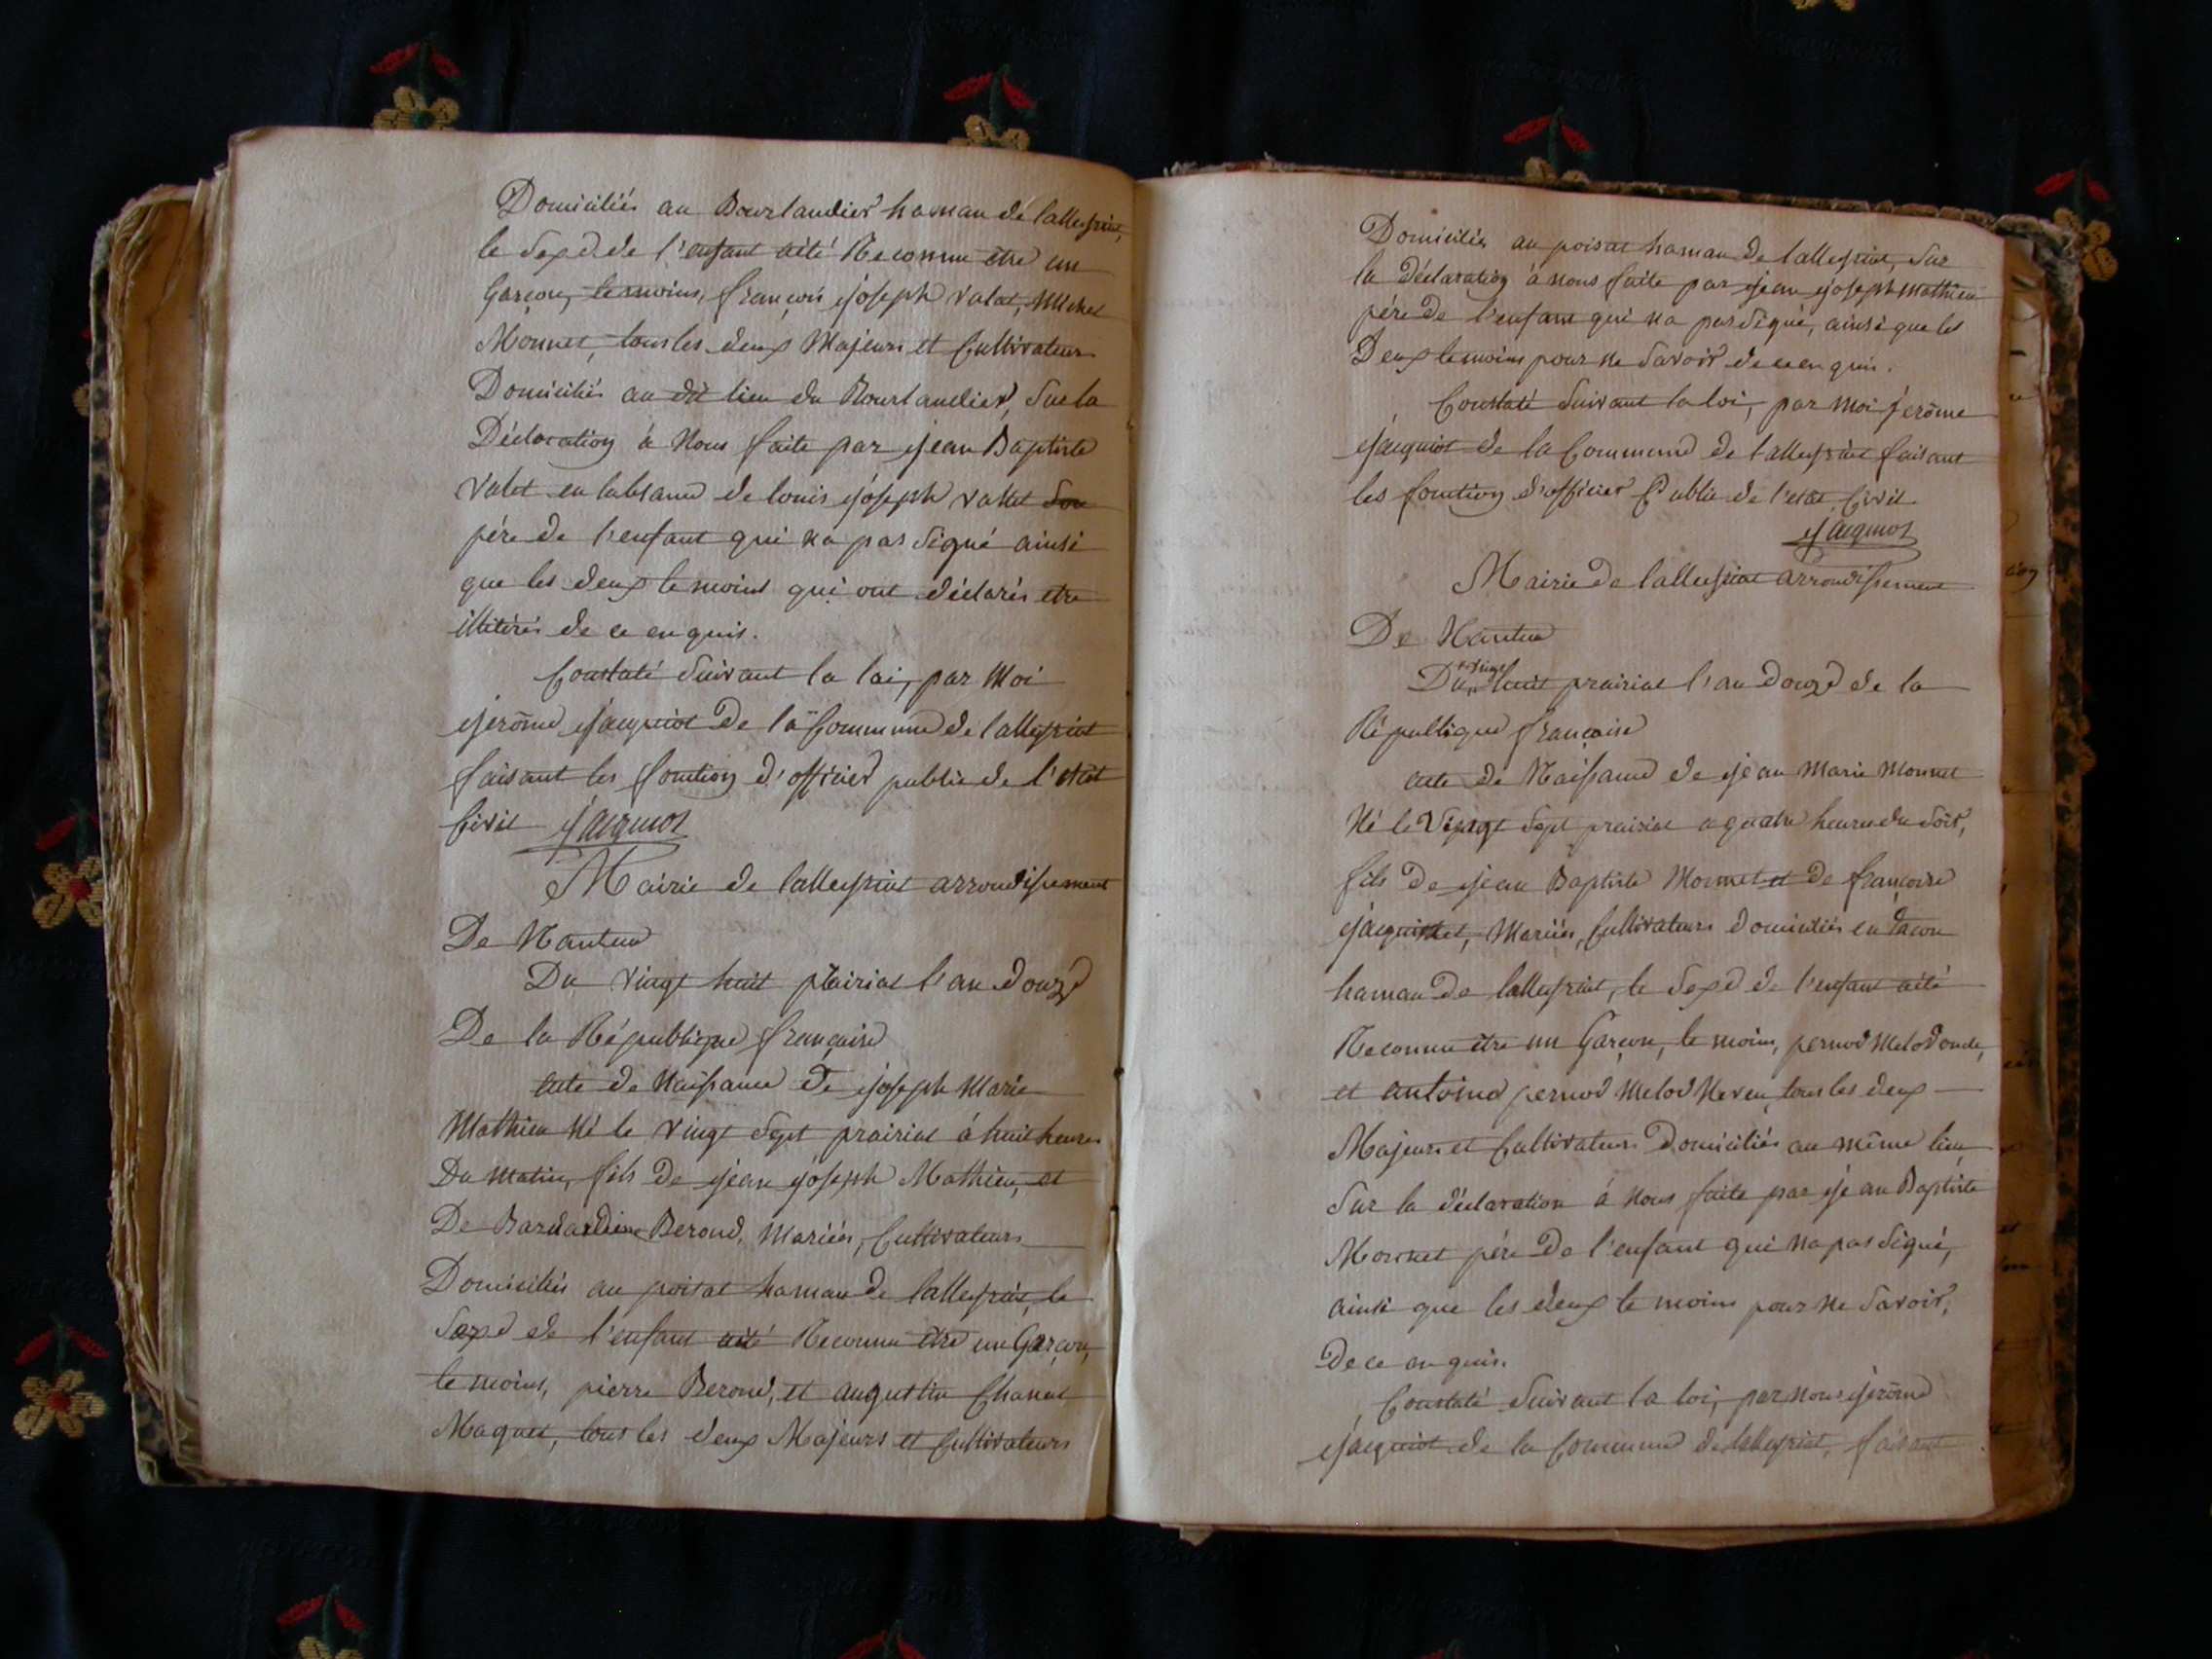 Domiciliés au Bourlandier hamau de lalleyriat,
le Sexe de l'enfant aité Reconnu être un
Garçon, temoins, françois joseph valet, Michel
Monnet, tous les deux Majeurs et Cultivateurs
Domiciliés au dit lieu du Bourlandier, Sur la
Déclaration à Nous faite par jean Baptiste
valet en labsance de louis joseph vallet Son
pére de l'enfant qui na pas Signé ainsi
que les deux temoins qui ont déclarés etre
illitérés de ce enquis.
Constaté Suivant la loi, par Moi
jerôme jacquiot De la Commune de lalleyriat
faisant les fonction d'officier public de l'etat
Civil jacquiot
Mairie de lalleyriat arrondissement
De Nantua
Du vingt huit prairial l'an douze
De la République française
acte de Naissance de joseph Marie
Mathieu Né le vingt Sept prairial à huit heures
Du matin, fils De jean joseph Mathieu, et
De Berond, Mariés, Cultivateurs
Domiciliés au poisat hamau de lalleyriat, le
Sexe de l'enfant aité Reconnu être un Garçon,
temoins, pierre Berond, et augustin Chanal
Maguet, tous les deux Majeurs et Cultivateurs
Domiciliés au poisat hamau de lalleyriat, Sur
la Déclaration à nous faite par jean joseph Mathieu
pére De l'enfant qui na pas Signé, ainsi que les
Deux temoins pour ne Savoir de ce enquis.
Constaté Suivant la loi, par Moi jerôme
jacquiot de la Commune de lalleyriat faisant
les fonction d'officier Public de l'etat Civil
jacquiot
Mairie de lalleyriat arrondissement
De Nantua
Du vingt huit prairial l'an douze de la
République française
acte de Naissance de jean Marie Monnet
Né le Vingt Sept prairial a quatre heures du Soir,
fils De jean Baptiste Monnet et De françoise
Mariés, Cultivateurs Domiciliés en
hamau De lalleyriat, le Sexe de l'enfant aité
Reconnu être un Garçon, temoins, pernod Melod oncle,
et antoine pernod Melod Neveu, tous les deux
Majeurs et Cultivateurs Domiciliés au même lieu,
Sur la déclaration à Nous faite par jean Baptiste
Monnet pére De l'enfant qui na pas Signé,
ainsi que les deux temoins pour ne Savoir,
De ce enquis.
Constaté Suivant la loi, par nous jerôme
jacquiot de la Commune de lalleyriat, faisant